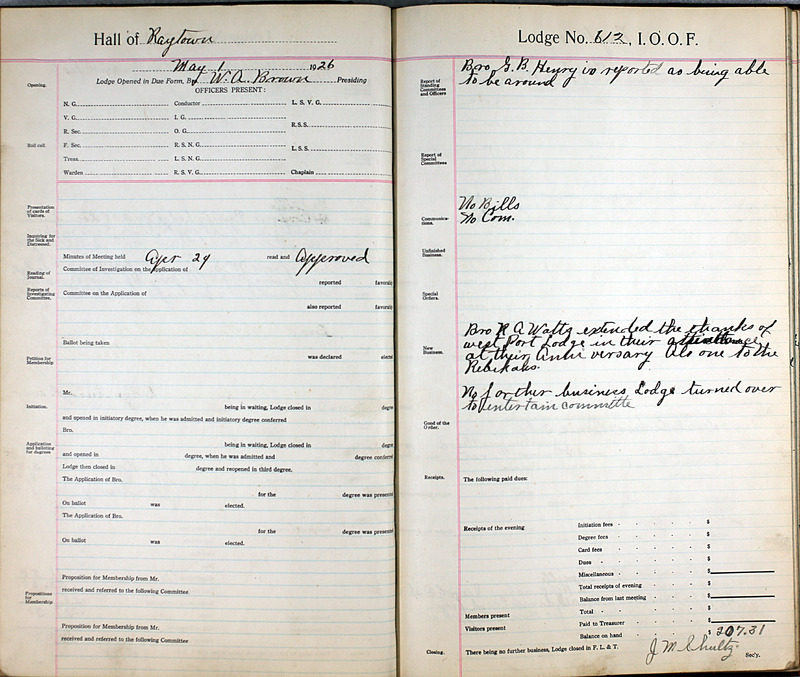 Hall of Raytown
May 1 1926
Opening.
Lodge Opened in Due Form, By W. A. Brown Presiding
OFFICERS PRESENT:
N. G. Conductor L. S. V. G.
V. G. I. G.
R.S.S.
R. Sec. O. G.
Roll call. F. Sec. R. S. N. G.
L. S. S.
Treas. L. S. N. G.
Warden R. S. V. G. Chaplain
Presentation of cards of Visitors.
Inquiring for the Sick and Distressed.
Minutes of Meeting held Apr 24 read and Approved
Reading of Journal.
Committee of Investigation on the Application of
reported favorab
Reports of Investigating Committee.
Committee on the Application of
also reported favorab
Ballot being taken
was declared elect
Petition for Membership
Mr.
Initiation.
being in waiting, Lodge closed in degre
and opened in initiatory degree, when he was admitted and initiatory degree conferred
Bro.
Application and balloting for degrees
being in waiting, Lodge closed in degre
and opened in degree, when he was admitted and degree conferre
Lodge then closed in degree and reopened in third degree.
The Application of Bro.
for the degree was presente
On ballot was elected.
The Application of Bro.
for the degree was presente
On ballot was elected.
Proposition for Membership from Mr.
Propositions for Membership.
received and referred to the following Committee
Proposition for Membership from Mr.
received and referred to the following Committee
Lodge No. 612, I. O. O. F.
Report of Standing Committees and Officers
Bro. G. B. Henry is reported as being able
to be around
Report of Special Committees
No Bills
Communications.
No Com.
Unfinished Business.
Special Orders.
New Business.
Bro R A Waltz extended the thanks of
west Port Lodge in their attendance
at their Anni versary Als one to the
Rebekahs.
No forther business, Lodge turned over
to entertain committe
Good of the Order.
Receipts. The following paid dues:
Receipts of the evening Initiation fees $
Degree fees $
Card fees $
Dues $
Miscellaneous $
Total receipts of evening $
Balance from last meeting $
Members present Total $
Visitors present Paid to Treasurer $
Balance on hand $ 207.31
Closing. There being no further business, Lodge closed in F. L. & T. J M Shultz Sec'y.